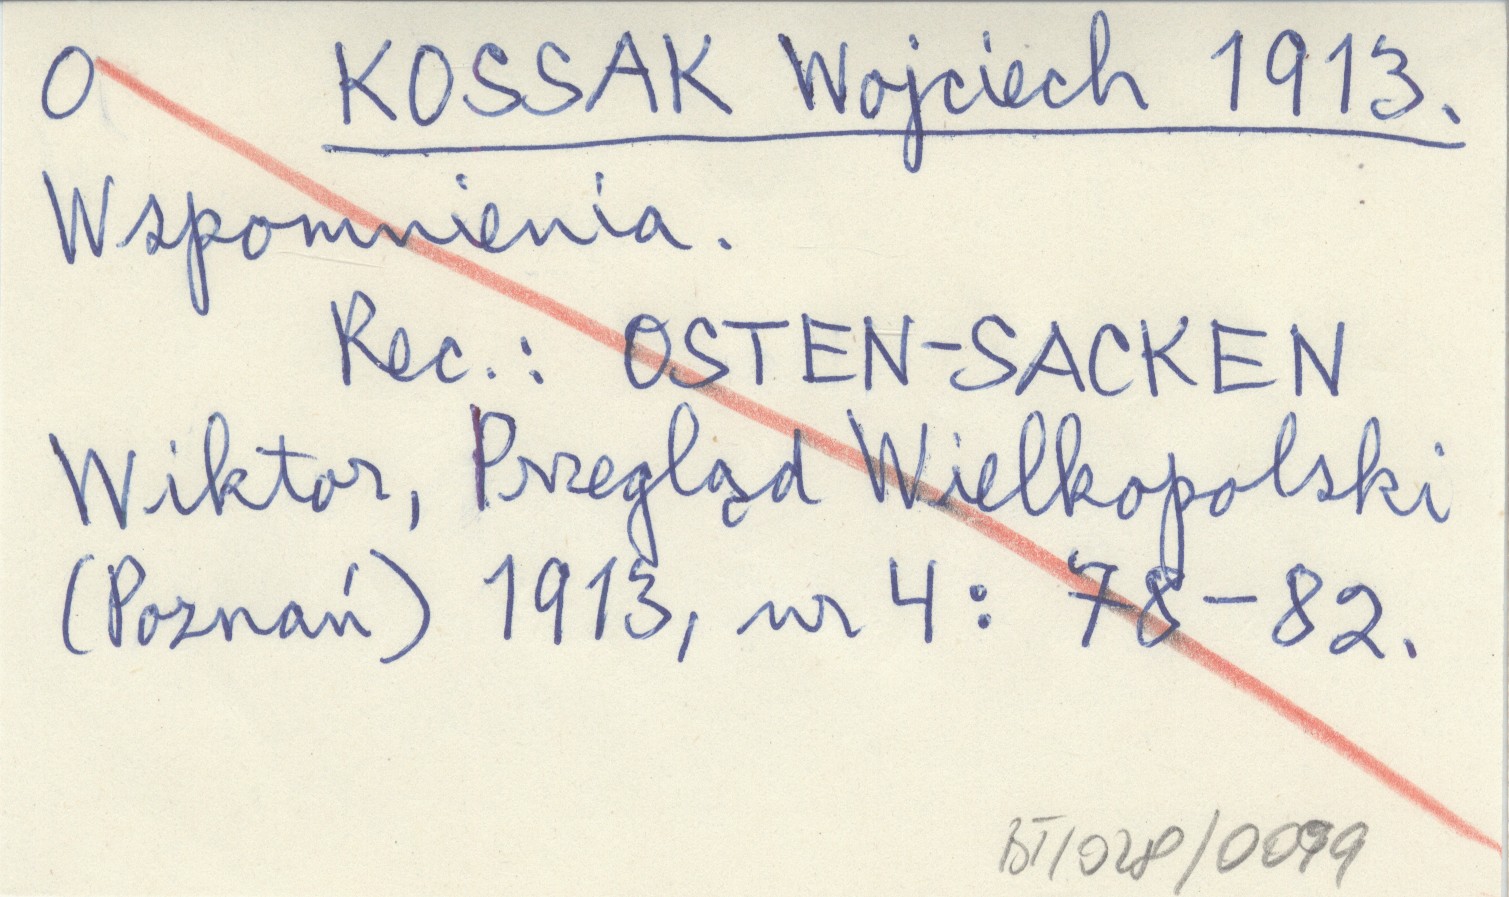 O KOSSAK Wojciech 1913.
Wspomnienia.
Rec.: OSTEN-SACKEN
Wiktor, Przegląd Wielkopolski
(Poznań) 1913, nr 4: 78-82.
BT/028/0099